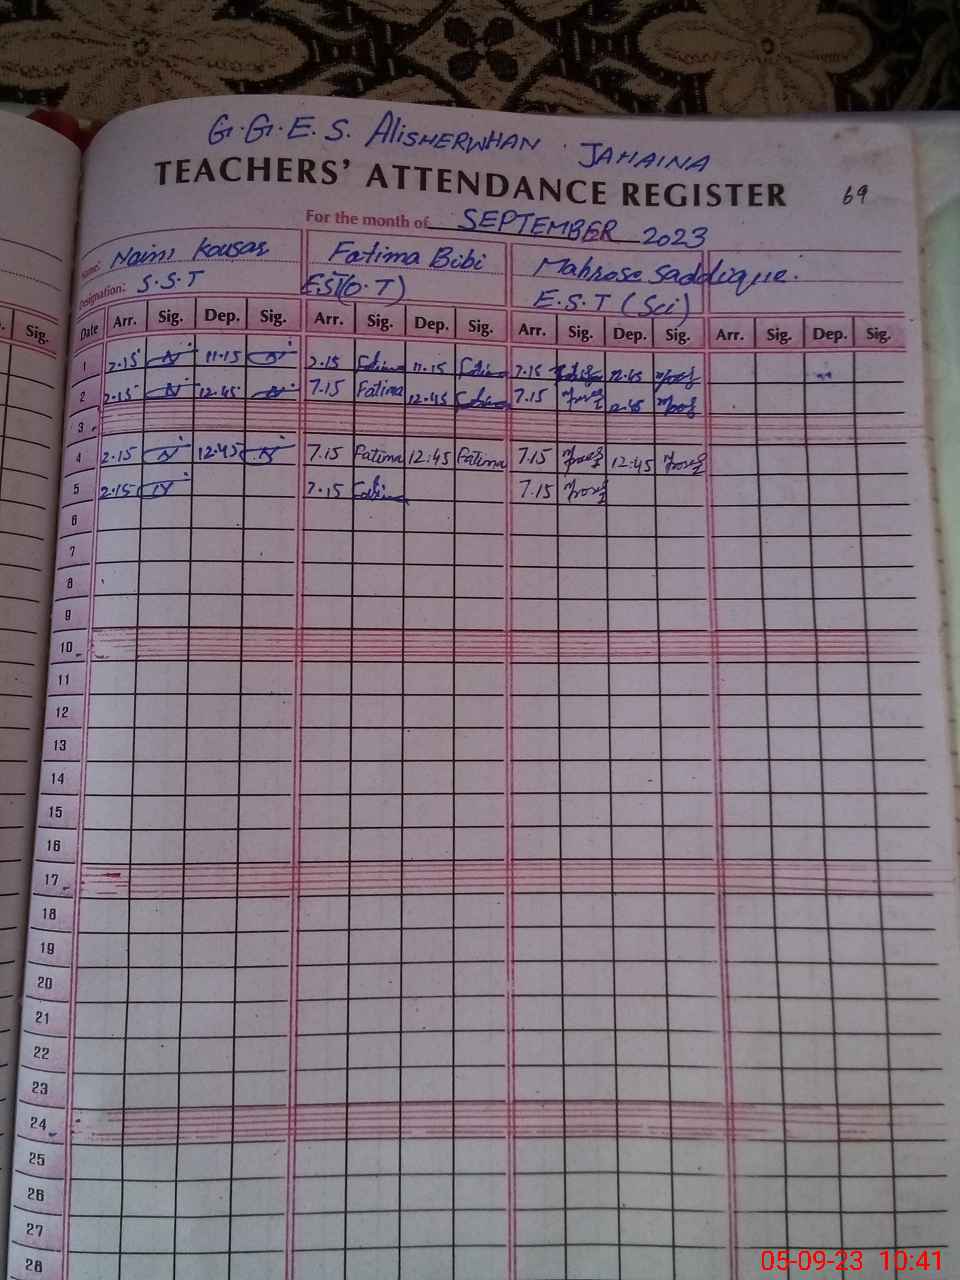 G.G.E.S. ALISHERWHAN . JAHAINA
TEACHERS' ATTENDANCE REGISTER 69
For the month of SEPTEMBER 2023
Name: Naim Kousar Fatima Bibi Mahrose Saddique.
Designation: S.S.T EST(O.T) E.S.T (Sci)
Sig. Date Arr. Sig. Dep. Sig. Arr. Sig. Dep. Sig. Arr. Sig. Dep. Sig. Arr. Sig. Dep. Sig.
1 7.15 11.15 7.15 Fatima 11.15 Fatima 7.15
2 7.15 12.45 7.15 Fatima 12.45 Fatima 7.15 12.45
3
4 7.15 12.45 7.15 Fatima 12:45 Fatima 7.15 12:45
5 7.15 7.15 Fatima 7.15
6
7
8
9
10
11
12
13
14
15
16
17
18
19
20
21
22
23
24
25
26
27
28
05-09-23 10:41